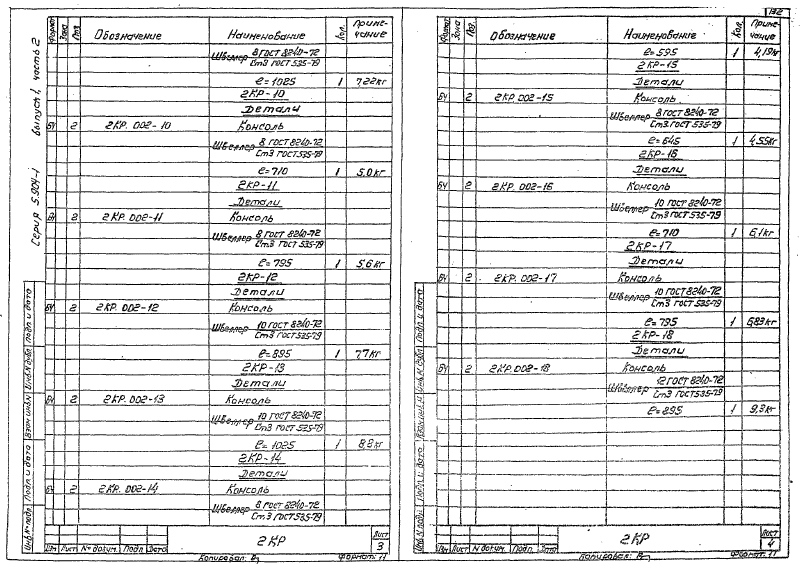 Серия 5.904-1 Выпуск 1, часть 2
Формат Зона Поз. Обозначение Наименование Кол. Приме-чание
Швеллер 8 ГОСТ 8240-72
Ст3 ГОСТ 535-79
ℓ=1025 1 7,22кг
2КР-10
Детали
БЧ 2 2КР. 002-10 Консоль
Швеллер 8 ГОСТ 8240-72
Ст3 ГОСТ 535-79
ℓ=710 1 5,0кг
2КР-11
Детали
БЧ 2 2КР. 002-11 Консоль
Швеллер 8 ГОСТ 8240-72
Ст3 ГОСТ 535-79
ℓ=795 1 5,6кг
2КР-12
Детали
БЧ 2 2КР. 002-12 Консоль
Швеллер 10 ГОСТ 8240-72
Ст3 ГОСТ 535-79
ℓ=895 1 7,7кг
2КР-13
Детали
БЧ 2 2КР. 002-13 Консоль
Швеллер 10 ГОСТ 8240-72
Ст3 ГОСТ 535-79
ℓ=1025 1 8,8кг
2КР-14
Детали
БЧ 2 2КР. 002-14 Консоль
Швеллер 8 ГОСТ 8240-72
Ст3 ГОСТ 535-79
Изм Лист № докум. Подп. Дата
2КР
Лист
3
Копировал: Формат: 11
Инв.№ подл. Подп. и дата Взам.инв.№ Инв.№ дубл. Подп. и дата
132
Формат Зона Поз. Обозначение Наименование Кол. Приме-чание
ℓ=595 1 4,19кг
2КР-15
Детали
БЧ 2 2КР. 002-15 Консоль
Швеллер 8 ГОСТ 8240-72
Ст3 ГОСТ 535-79
ℓ=645 1 4,55кг
2КР-16
Детали
БЧ 2 2КР. 002-16 Консоль
Швеллер 10 ГОСТ 8240-72
Ст3 ГОСТ 535-79
ℓ=710 1 6,1кг
2КР-17
Детали
БЧ 2 2КР. 002-17 Консоль
Швеллер 10 ГОСТ 8240-72
Ст3 ГОСТ 535-79
ℓ=795 1 6,83кг
2КР-18
Детали
БЧ 2 2КР. 002-18 Консоль
Швеллер 12 ГОСТ 8240-72
Ст3 ГОСТ 535-79
ℓ=895 1 9,3кг
Изм Лист № докум. Подп. Дата
2КР
Лист
4
Копировал: Формат: 11
Инв.№ подл. Подп. и дата Взам.инв.№ Инв.№ дубл. Подп. и дата